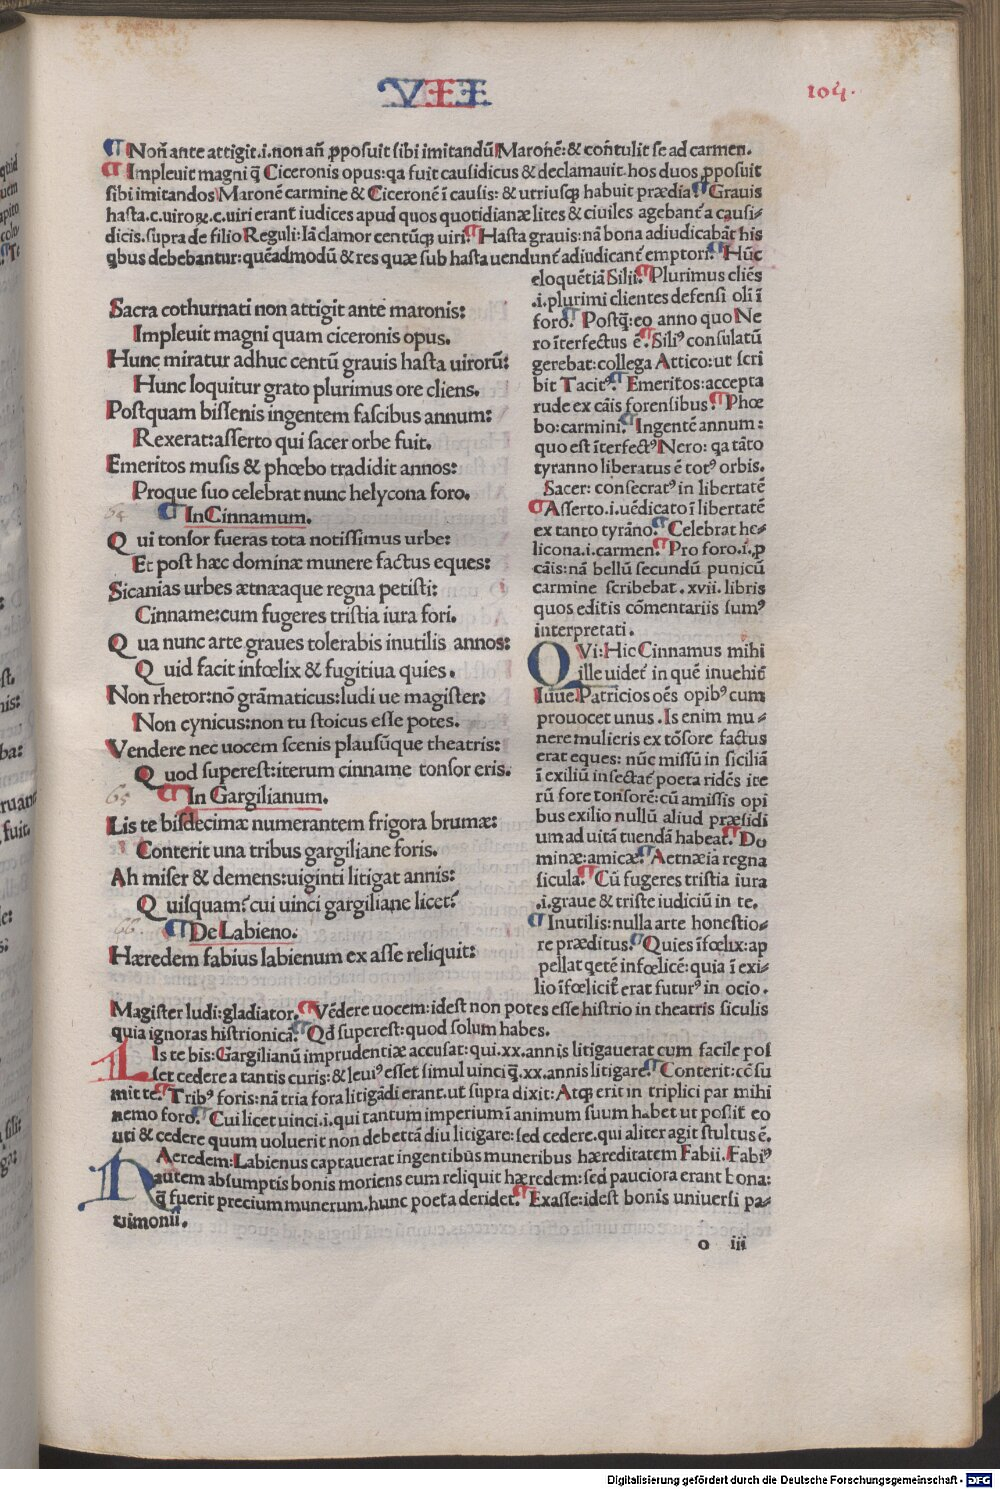 VII
104.
¶ Non̄ ante attigit .i. non an̄ ꝓposuit sibi imitandū Maronē: & con̄tulit se ad carmen.
¶ Impleuit magni q̄ Ciceronis opus: qa fuit causidicus & declamauit. hos duos ꝓposuit
sibi imitandos Maronē carmine & Ciceronē ī causis: & utriusqꝫ habuit prædia. ¶ Grauis
hasta.c.uiroꝝ.c.uiri erant iudices apud quos quotidianæ lites & ciuiles agebant̄ a causi-
dicis. supra de filio Reguli: Iā clamor centūqꝫ uiri. ¶ Hasta grauis: nā bona adiudicabāt his
qbus debebantur: quēadmodū & res quæ sub hasta uendunt̄ adiudicant̄ emptori. ¶ Hūc
Sacra cothurnati non attigit ante maronis:
Impleuit magni quam ciceronis opus.
Hunc miratur adhuc centū grauis hasta uirorū:
Hunc loquitur grato plurimus ore cliens.
Postquam bissenis ingentem fascibus annum:
Rexerat: asserto qui sacer orbe fuit.
Emeritos musis & phœbo tradidit annos:
Proque suo celebrat nunc helycona foro.
64
¶ In Cinnamum.
Qui tonsor fueras tota notissimus urbe:
Et post hæc dominæ munere factus eques:
Sicanias urbes ætnæaque regna petisti:
Cinname: cum fugeres tristia iura fori.
Qua nunc arte graues tolerabis inutilis annos:
Quid facit infœlix & fugitiua quies.
Non rhetor: nō grāmaticus: ludi ue magister:
Non cynicus: non tu stoicus esse potes.
Vendere nec uocem scenis plausūque theatris:
Quod superest: iterum cinname tonsor eris.
65
¶ In Gargilianum.
Lis te bisdecimæ numerantem frigora brumæ:
Conterit una tribus gargiliane foris.
Ah miser & demens: uiginti litigat annis:
Quisquam? cui uinci gargiliane licet?
66
¶ De Labieno.
Hæredem fabius labienum ex asse reliquit:
eloquētiā Silii. ¶ Plurimus cliēs
.i. plurimi clientes defensi oli ī
foro. ¶ Postq̄: eo anno quo Ne
ro īterfectus ē. ¶ Siliꝰ consulatū
gerebat: collega Attico: ut scri
bit Tacitꝰ. ¶ Emeritos: accepta
rude ex cāis forensibus. ¶ Phœ
bo: carmini. ¶ Ingentē annum:
quo est īterfectꝰ Nero: qa tāto
tyranno liberatus ē totꝰ orbis.
Sacer: consecratꝰ in libertatē
¶ Asserto .i. uēdicato ī libertatē
ex tanto tyrāno. ¶ Celebrat he-
licona .i. carmen. ¶ Pro foro .i. ꝓ
cāis: nā bellū secundū punicū
carmine scribebat .xvii. libris
quos editis cōmentariis sumꝰ
interpretati.
QVi: Hic Cinnamus mihi
ille uidet̄ in quē inuehit̄
Iuue. Patricios oēs opibꝰ cum
prouocet unus. Is enim mu-
nere mulieris ex tōsore factus
erat eques: nūc missū in siciliā
ī exiliū insectat̄ poeta ridēs ite
rū fore tonsorē: cū amissis opi
bus exilio nullū aliud præsidi
um ad uitā tuendā habeat. ¶ Do
minæ: amicæ. ¶ Aetnæia regna
sicula. ¶ Cū fugeres tristia iura
.i. graue & triste iudiciū in te.
¶ Inutilis: nulla arte honestio-
re præditus. ¶ Quies īfœlix: ap
pellat qetē infœlicē: quia ī exi-
lio īfœlicit̄ erat futurꝰ in ocio.
Magister ludi: gladiator. ¶ Vēdere uocem: idest non potes esse histrio in theatris siculis
quia ignoras histrionicā. ¶ Qd̄ superest: quod solum habes.
LIs te bis: Gargilianū imprudentiæ accusat: qui .xx. annis litigauerat cum facile pos
set cedere a tantis curis: & leuiꝰ esset simul uinci q̄ .xx. annis litigare. ¶ Conterit: cōsu
mit te. ¶ Tribꝰ foris: nā tria fora litigādi erant. ut supra dixit: Atqꝫ erit in triplici par mihi
nemo foro. ¶ Cui licet uinci .i. qui tantum imperium ī animum suum habet ut possit eo
uti & cedere quum uoluerit non debet tā diu litigare: sed cedere. qui aliter agit stultus ē.
HAeredem: Labienus captauerat ingentibus muneribus hæreditatem Fabii. Fabiꝰ
autem absumptis bonis moriens eum reliquit hæredem: sed pauciora erant bona:
q̄ fuerit precium munerum. hunc poeta deridet. ¶ Ex asse: idest bonis uniuersi pa-
trimonii.
o iii
Digitalisierung gefördert durch die Deutsche Forschungsgemeinschaft - DFG